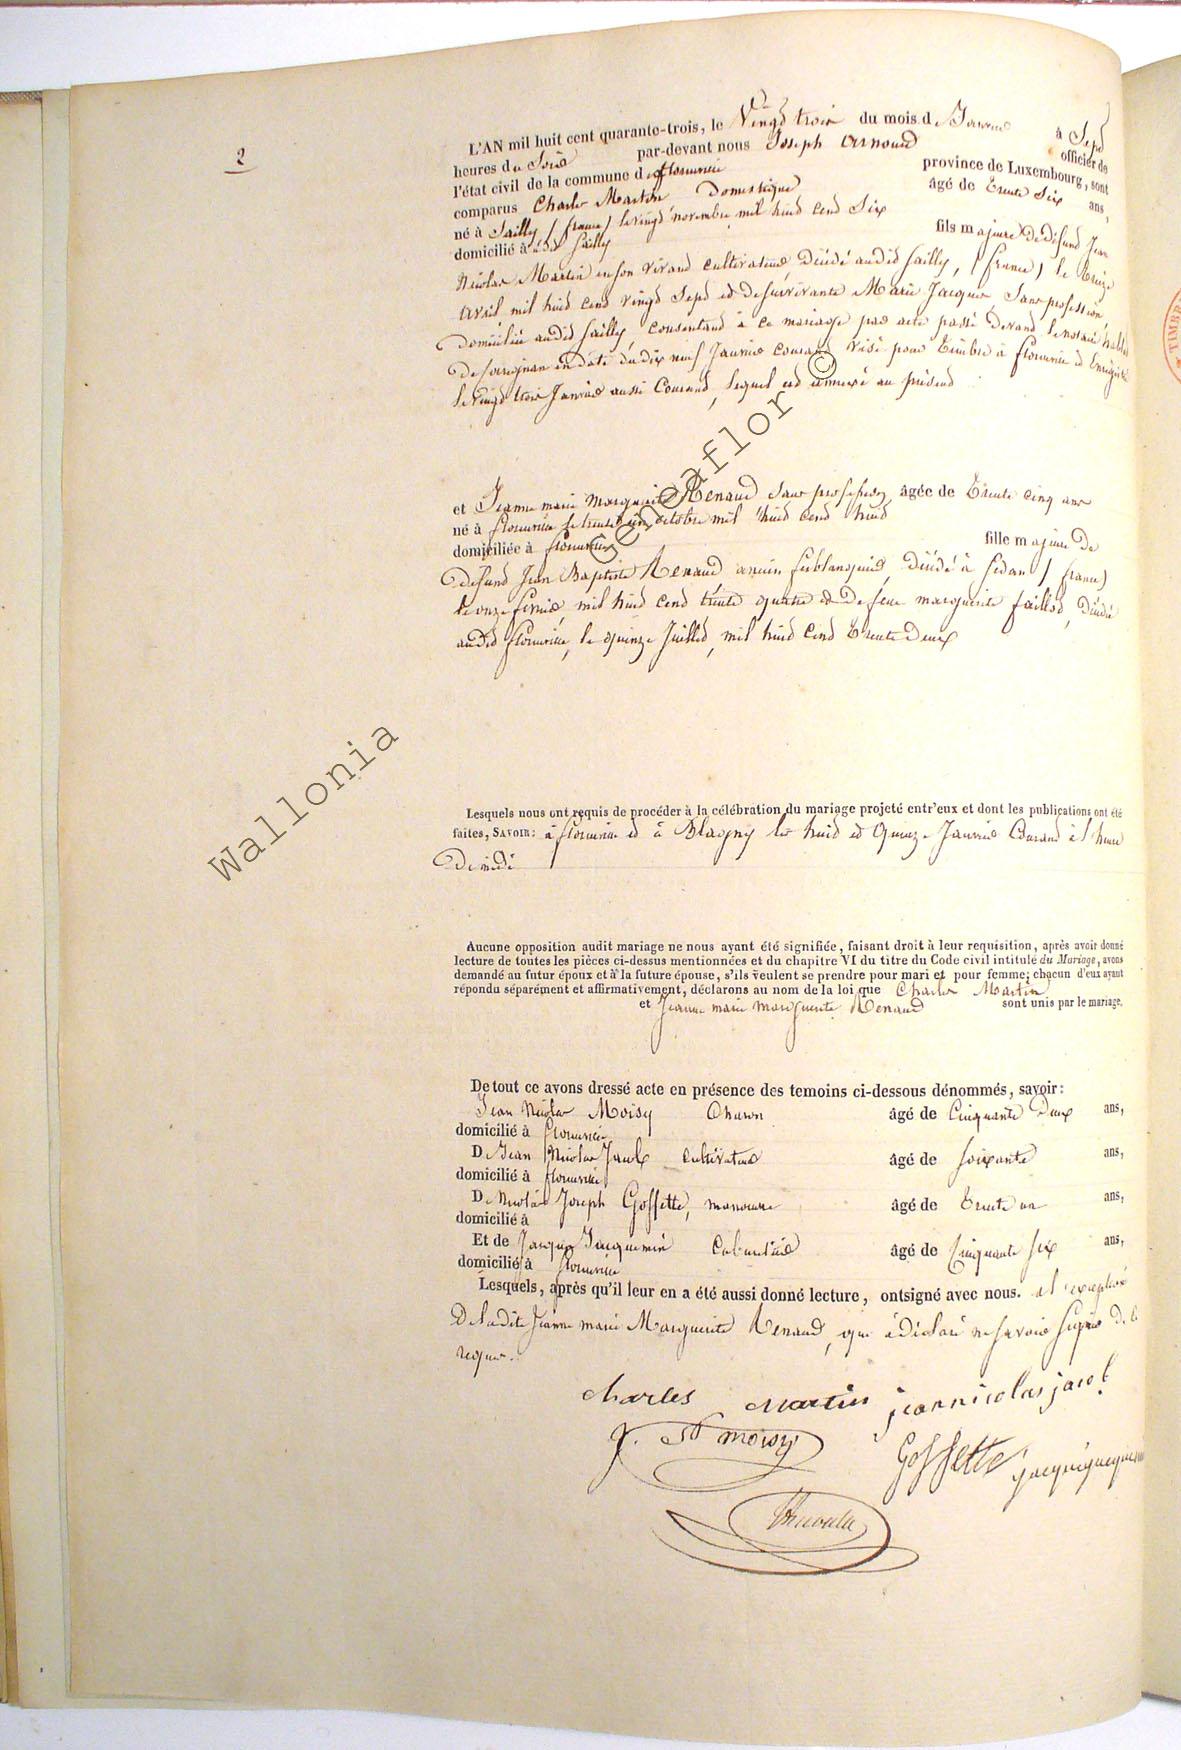 2
L'AN mil huit cent quarante-trois, le Vingt trois du mois de Janvier à Sept
heures du Soir par-devant nous Joseph Arnould officier de
l'état civil de la commune de florenville province de Luxembourg, sont
comparus Charles Martin Domestique âgé de Trente Six ans,
né à Sailly (france) le vingt novembre mil huit cent Six
domicilié à dit Sailly fils majeur de défunt Jean
Nicolas Martin en son vivant cultivateur, décédé audit Sailly, (france) le
avril mil huit cent vingt Sept et de survivante Marie Jacques, Sans profession,
Domiciliée audit Sailly consentant à ce mariage par acte passé devant le notaire
De Carignan en date du dix neuf Janvier courant visé pour timbre à florenville et Enregistré
le vingt trois Janvier aussi Courant, lequel est annexé au présent
et Jeanne marie marguerite Renaud, Sans profession, âgée de Trente cinq ans
né à florenville le trente un octobre mil huit cent huit
domiciliée à florenville fille majeure De
Défunt Jean Baptiste Renaud, ancien ferblanquier, Décédé à Sedan (france)
le onze février mil huit cent trente quatre et De feue marguerite faillot, Décédée
audit florenville, le quinze Juillet, mil huit Cent Trente Deux
Lesquels nous ont requis de procéder à la célébration du mariage projeté entr'eux et dont les publications ont été
faites, SAVOIR: à florenville et à Blagny les huit et Quinze Janvier Courant à l'heure
De midi
Aucune opposition audit mariage ne nous ayant été signifiée, faisant droit à leur requisition, après avoir donné
lecture de toutes les pièces ci-dessus mentionnées et du chapitre VI du titre du Code civil intitulé du Mariage, avons
demandé au futur époux et à la future épouse, s'ils veulent se prendre pour mari et pour femme; chacun d'eux ayant
répondu séparément et affirmativement, déclarons au nom de la loi que Charles Martin
et Jeanne marie marguerite Renaud sont unis par le mariage.
De tout ce avons dressé acte en présence des temoins ci-dessous dénommés, savoir:
Jean Nicolas Moisy Charron âgé de Cinquante Deux ans,
domicilié à florenville
De Jean Nicolas Jacob cultivateur âgé de soixante ans,
domicilié à florenville
De Nicolas Joseph Goffette, manoeuvre âgé de Trente un ans,
domicilié à
Et de Jacques Jacquemin Cabaretier âgé de Cinquante six ans,
domicilié à florenville
Lesquels, après qu'il leur en a été aussi donné lecture, ont signé avec nous. à l'exception
De ladite Jeanne marie Marguerite Renaud, qui a déclaré ne savoir signer De ce
requise.
charles martin jean nicolas jacob
J. N moisy Goffette
Arnould
Wallonia Geneaflor ©
TIMBRE